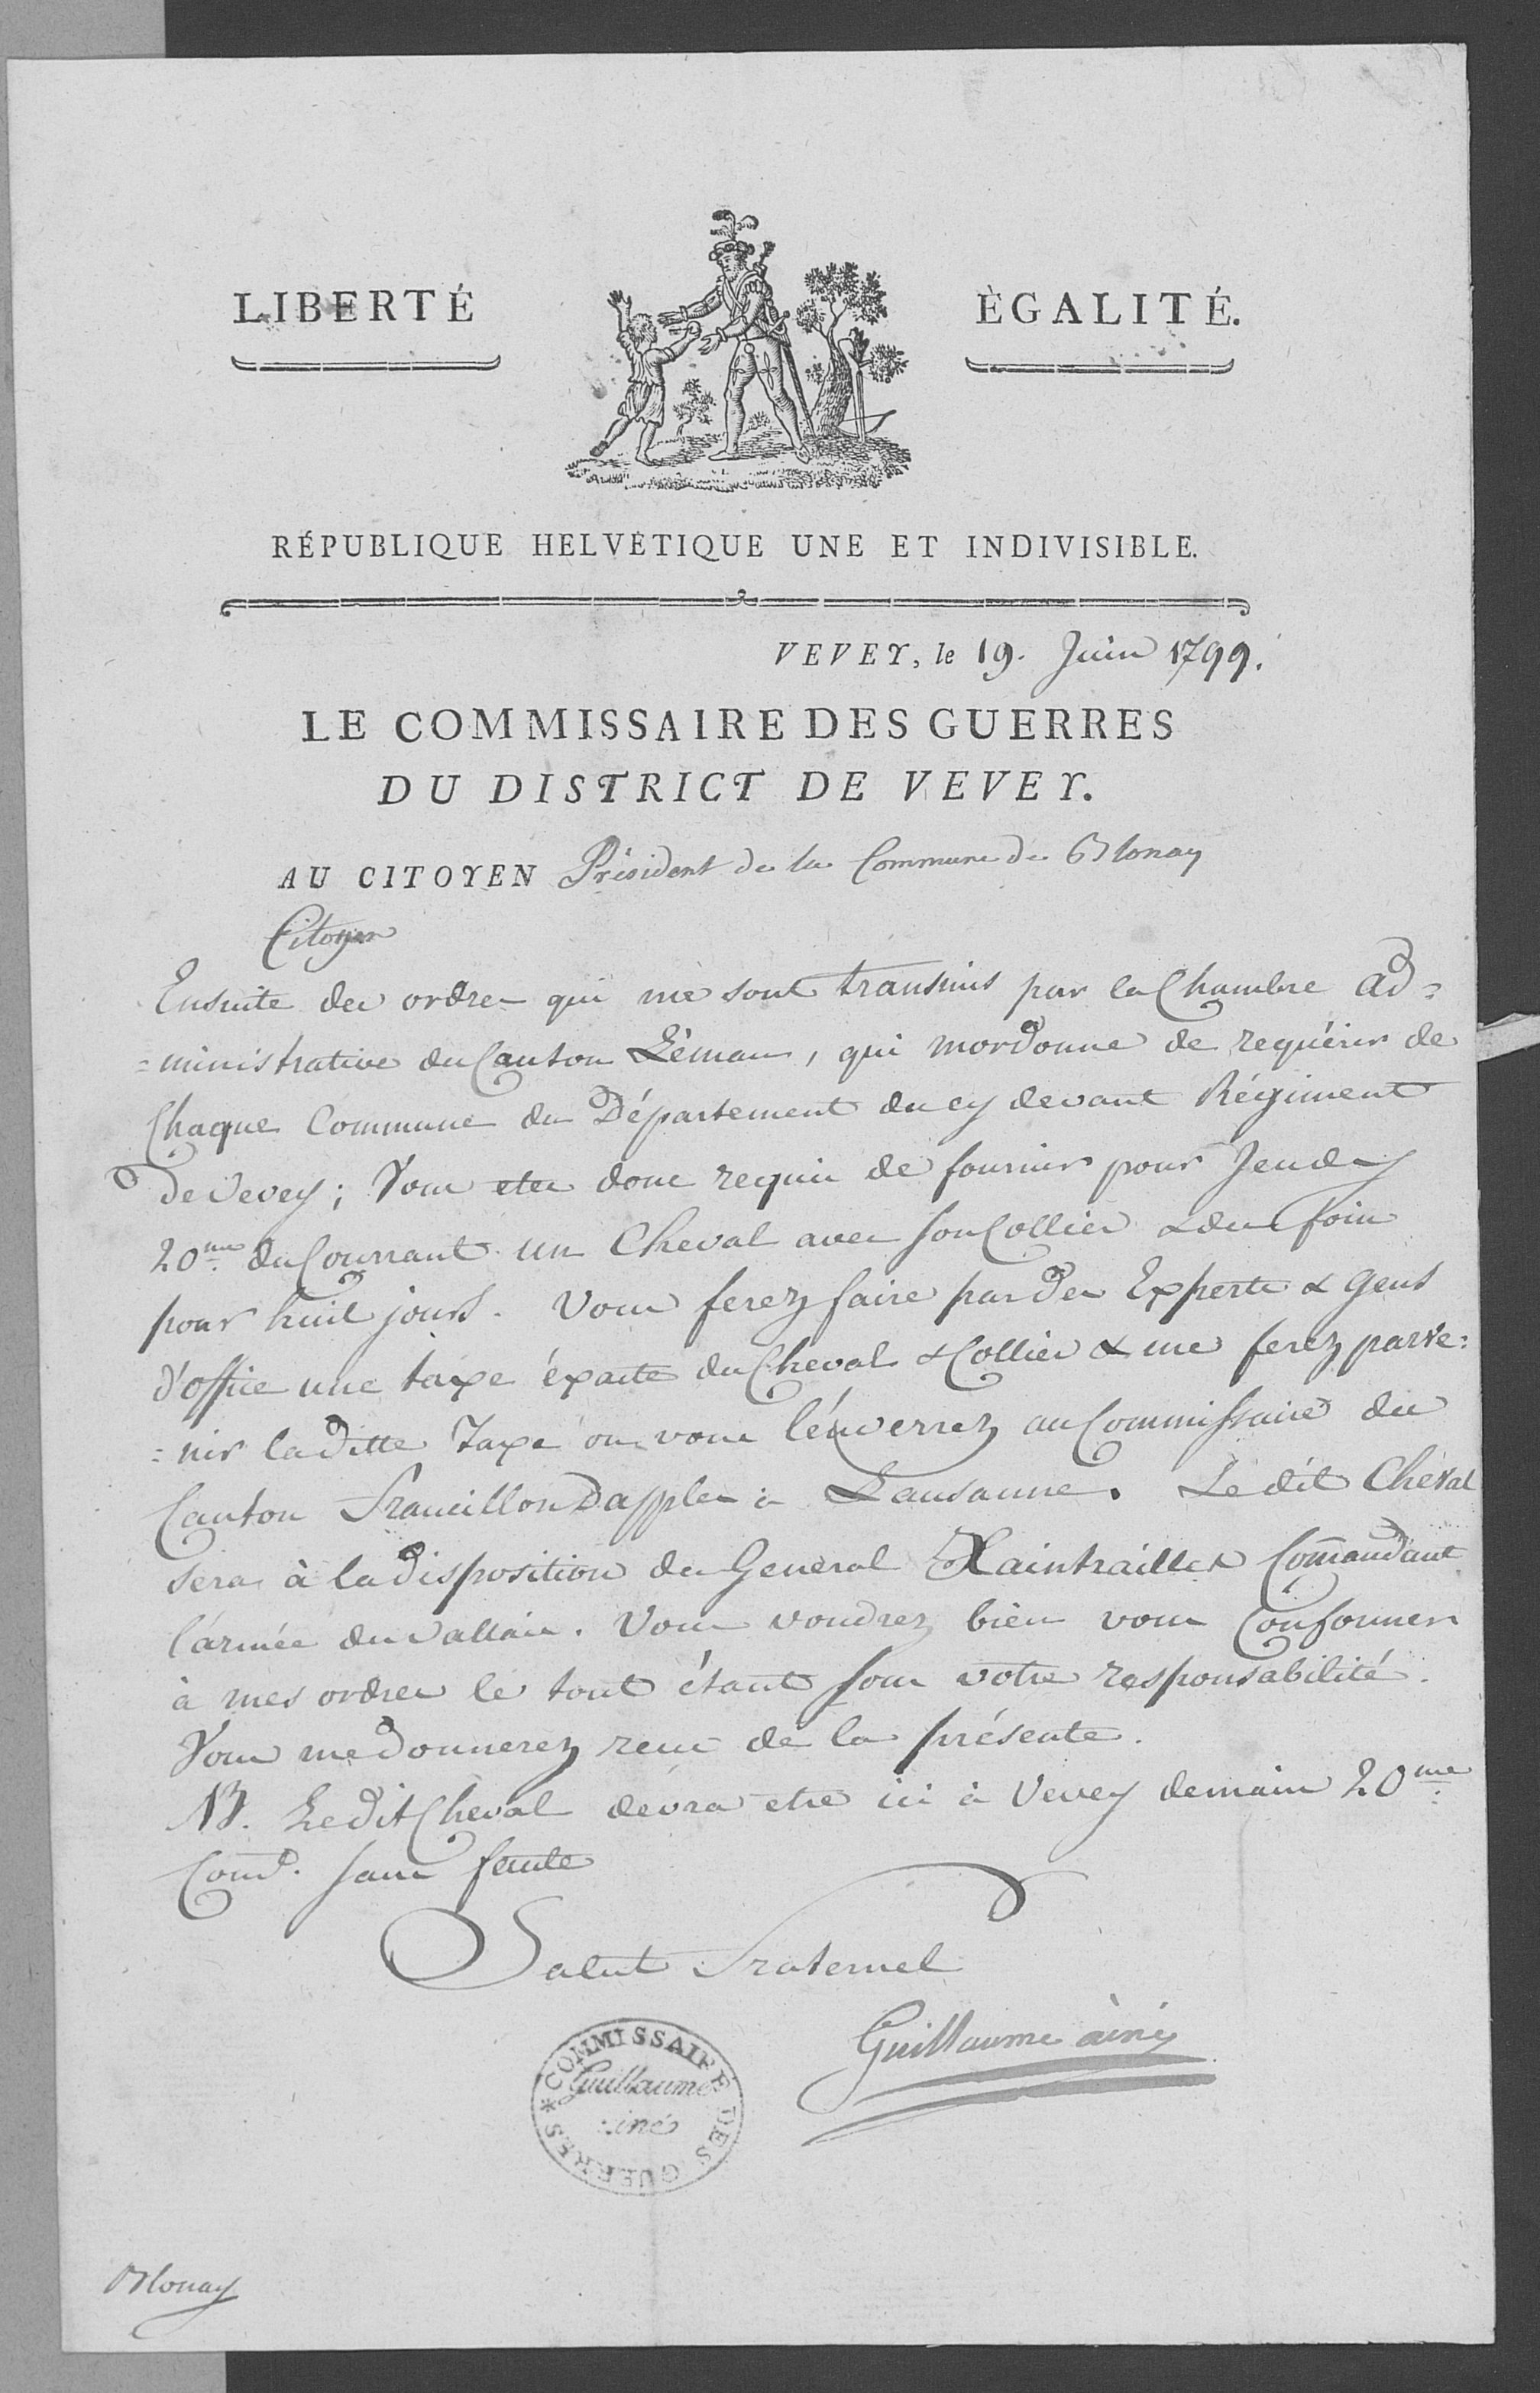 LIBERTÉ ÈGALITÉ.
RÉPUBLIQUE HELVÉTIQUE UNE ET INDIVISIBLE.
VEVEY, le 19. Juin 1799.
LE COMMISSAIRE DES GUERRES
DU DISTRICT DE VEVEY.
AU CITOYEN Président de la Commune de Blonay
Citoyen
Ensuite des ordres qui me sont transmis par la Chambre Ad=
=ministrative du Canton Léman, qui mordonne de requérir de
Chaque Commune du Département du cy devant Régiment
de Vevey; Vous etes donc requis de fournir pour Jeudy
20me. du Courrant un Cheval avec son Collier & du foin
pour huit jours. Vous ferez faire par des Experts & gens
d'office une taxe éxacte du Cheval & Collier & me ferez parve=
=nir la ditte Taxe ou vous l'énverrez au Commissaire du
Canton Francillon Dapples à Lausanne. Le dit Cheval
sera à la disposition du General Xaintrailles Comandant
l'armée du Vallais. Vous voudrez bien vous Conformer
à mes ordres le tout étant sous votre responsabilité.
Vous me donnerez recu de la présente.
NB. Le dit Cheval dévra etre ici à Vevey demain 20me.
Court. sans faute
Salut Fraternel
Guillaume ainé
COMMISSAIRE DES GUERRES *
Guillaume
ainé
Blonay